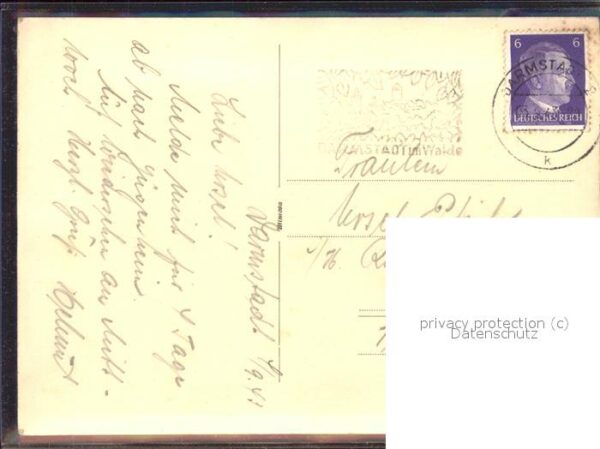 Darmstadt 4/9.43
Liebe Ursel!
Melde mich für 4 Tage
ab nach Jugenheim.
Auf Wiedersehen am Mitt-
woch. Herzl. Gruß Helmut
DARMSTADT im Walde
6 6
DEUTSCHES REICH
DARMSTADT
k
Fräulein
Ursel
privacy protection (c)
Datenschutz